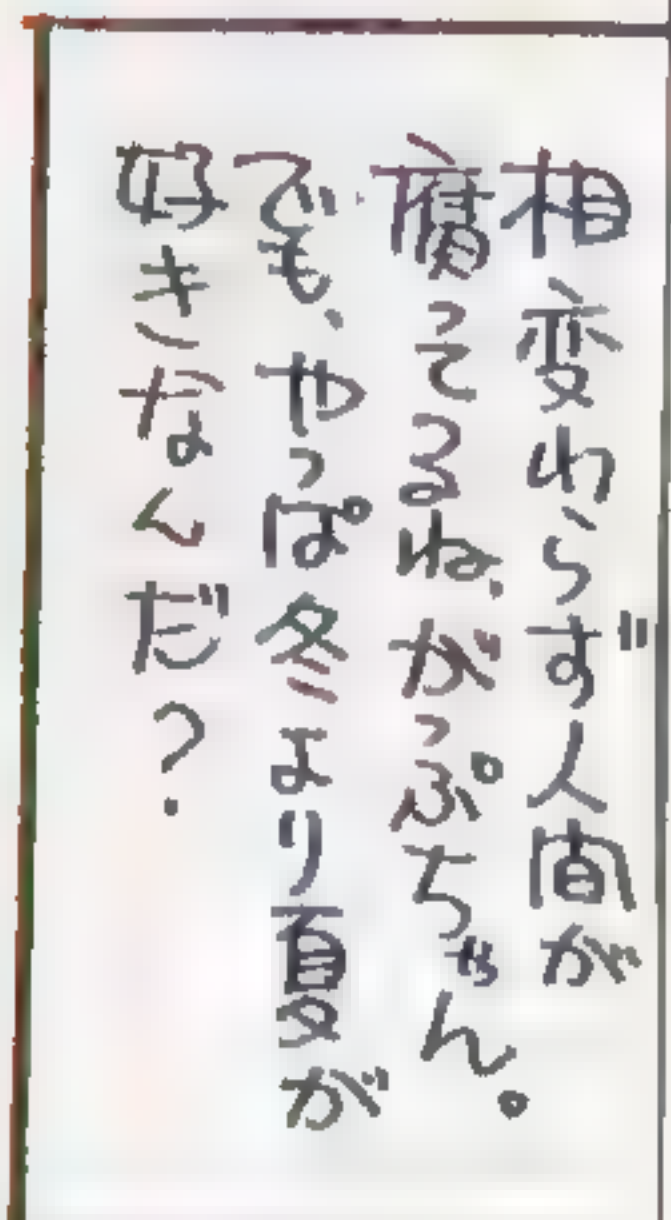 相変わらず人間が
腐ってるね、がっぷちゃん。
でも、やっぱ冬より夏が
好きなんだ？